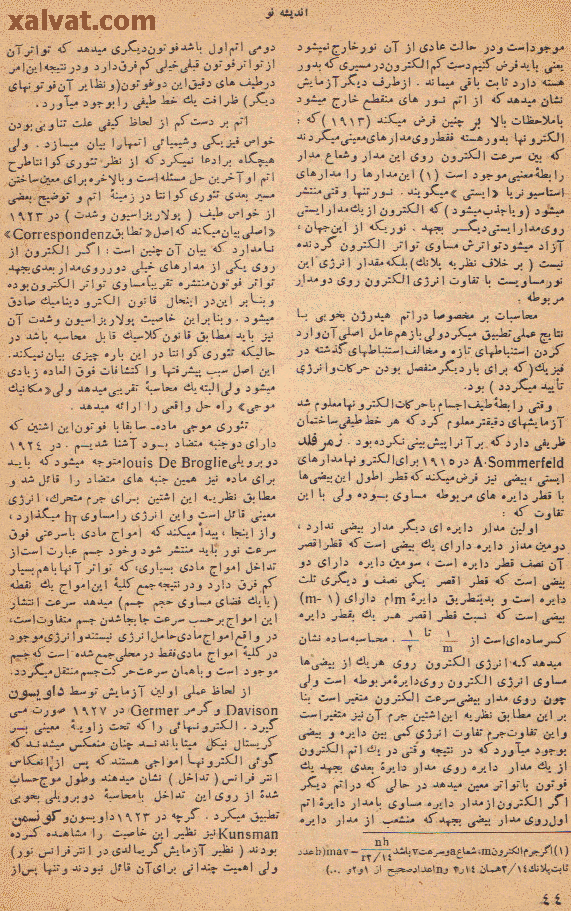 xalvat.com
اندیشه نو
موجود است ودر حالت عادی از آن نور خارج نمیشود
یعنی باید فرض کنیم دست کم الکترون در مسیری که بدور
هسته دارد ثابت باقی میماند . ازطرف دیگر آزمایش
نشان میدهد که از اتم نور های منقطع خارج میشود
باملاحظات بالا بر چنین فرض میکند (۱۹۱۳) که :
الکترونها بدور هسته فقط روی مدارهای معینی میگردند
که بین سرعت الکترون روی این مدار وشعاع مدار
رابطهٔ معینی موجود است (۱) این مدارها را مدارهای
استاسیونر یا «ایستی» میگویند . نور تنها وقتی منتشر
میشود (ویاجذب میشود) که الکترون از یك مدار ایستی
روی مدار ایستی دیگر بجهد . نوریکه از این جهان ،
آزاد میشود تواترش مساوی تواتر الکترون گردنده
نیست ( بر خلاف نظریه پلانك) بلکه مقدار انرژی این
نور مساویست با تفاوت انرژی الکترون روی دو مدار
مربوطه .
محاسبات بر مخصوصا در اتم هیدرژن بخوبی با
نتایج عملی تطبیق میکرد ولی باز هم عامل اصلی آن وارد
کردن استنباطهای تازه و مخالف استنباطهای گذشته در
فیزیك (که برای بار دیگر منفصل بودن حرکات و انرژی
تأیید میگردد ) بود.
وقتی رابطهٔ طیف اجسام با حرکات الکترونها معلوم شد
آزمایشهای دقیقتر معلوم کرد که هر خط طیفی ساختمان
ظریفی دارد که بر آنرا پیش بینی نکرده بود . زمرفلد
A·Sommerfeld در ۱۹۱۵ برای الکترونها مدارهای
ایستی ، بیضی نیز فرض میکند که قطر اطول این بیضی ها
با قطر دایره های مربوطه مساوی بوده ولی با این
تفاوت که :
اولین مدار دایره ای دیگر مدار بیضی ندارد ،
دومین مدار دایره دارای یك بیضی است که قطر اقصر
آن نصف قطر دایره است ، سومین دایره دارای دو
بیضی است که قطر اقصر یکی نصف و دیگری ثلث
دایره است و بدینطریق دایرهٔ mام دارای (m-۱)
بیضی است که نسبت قطر اقصر هر یك بقطر دایره
کسر ساده ای است از ۱/m تا ۱/۲ . محاسبه ساده نشان
میدهد که انرژی الکترون روی هر یك از بیضی ها
مساوی انرژی الکترون روی دایرهٔ مربوطه است ولی
چون روی مدار بیضی سرعت الکترون متغیر است بنا
بر این مطابق نظریه این اشتین جرم آن نیز متغیر است
و این تفاوت جرم تفاوت انرژی کمی بین دایره و بیضی
بوجود میآورد که در نتیجه وقتی در یك اتم الکترون
از یك مدار دایره روی مدار دایرهٔ بعدی بجهد یك
فوتون با تواتر معین میدهد در حالی که در اتم دیگر
اگر الکترون از مدار دایره مساوی با مدار دایرهٔ اتم
اول روی مدار بیضی بجهد که منشعب از مدار دایره
(۱) اگر جرم الکترون m، شعاع a وسرعت v باشد
دومی اتم اول باشد فوتون دیگری میدهد که تواتر آن
از تواتر فوتون قبلی خیلی کم فرق دارد و در نتیجه این امر
در طیف های دقیق این دو فوتون (و نظایر آن فوتونهای
دیگر) ظرافت یك خط طیفی را بوجود میآورد .
اتم بر دست کم از لحاظ کیفی علت تناوبی بودن
خواص فیزیکی و شیمیائی اتمها را بیان میسازد . ولی
هیچگاه بر ادعا نمیکرد که از نظر تئوری کوانتا طرح
اتم او آخرین حل مسئله است و بالاخره برای معین ساختن
مسیر بعدی تئوری کوانتا در زمینهٔ اتم و توضیح بعضی
از خواص طیف ( پولاریزاسیون و شدت ) در ۱۹۲۳
«اصلی بیان میکند که اصل «تطابق Correspondenz»
نامدارد که بیان آن چنین است : اگر الکترون از
روی یکی از مدارهای خیلی دور روی مدار بعدی بجهد
تواتر فوتون منتشره تقریباً مساوی تواتر الکترون بوده
و بنابر این در اینحال قانون الکترو دینامیك صادق
میشود . و بنابراین خاصیت پولاریزاسیون وشدت آن
نیز باید مطابق قانون کلاسیك قابل محاسبه باشد در
حالیکه تئوری کوانتا در این باره چیزی بیان نمیکند.
این اصل سبب پیشرفتها و اکتشافات فوق العاده زیادی
میشود ولی البته یك محاسبهٔ تقریبی میدهد ولی «مکانیك
موجی» راه حل واقعی را ارائه میدهد .
تئوری موجی ماده. سابقا با فوتون این اشتین که
دارای دو جنبه متضاد بود آشنا شدیم . در ۱۹۲٤
دوبرویلی louis De Broglie متوجه میشود که باید
برای ماده نیز همین جنبه های متضاد را قائل شد و
مطابق نظریه این اشتین برای جرم متحرك، انرژی
معینی قائل است و این انرژی را مساوی میگذارد ،
و از اینجا ، پیدا میکند که امواج مادی با سرعتی فوق
سرعت نور باید منتشر شود و خود جسم عبارت است از
تداخل امواج مادی بسیاری، که تواتر آنها با هم بسیار
کم فرق دارد و در نتیجه جمع کلیهٔ این امواج یك نقطه
(یا یك فضای مساوی حجم جسم) میدهد سرعت انتشار
این امواج بر حسب سرعت جابجا شدن جسم متفاوت است،
در واقع امواج مادی حامل انرژی نیستند و انرژی موجود
در کلیهٔ امواج مادی فقط در محلی جمع شده است که جسم
موجود است و با همان سرعت حرکت جسم منتقل میگردد.
از لحاظ عملی اولین آزمایش توسط داویسون
Davison و گرمر Germer در ۱۹۲۷ صورت می
گیرد . الکترونهائی را که تحت زاویهٔ معینی بسر
کریستال نیکل میتاباندند چنان منعکس میشدند که
گوئی الکترونها امواجی هستند که پس از انعکاس
انترفرانس ( تداخل ) نشان میدهند وطول موج حساب
شده از روی این تداخل با محاسبهٔ دوبرویلی بخوبی
تطبیق میکرد . گرچه در ۱۹۲۳ داویسون و کونسمن
Kunsman نیز نظیر این خاصیت را مشاهده کرده
بودند ( نظیر آزمایش گریمالدی در انترفرانس نور)
ولی اهمیت چندانی برای آن قائل نبودند و تنها پس از
٤٤